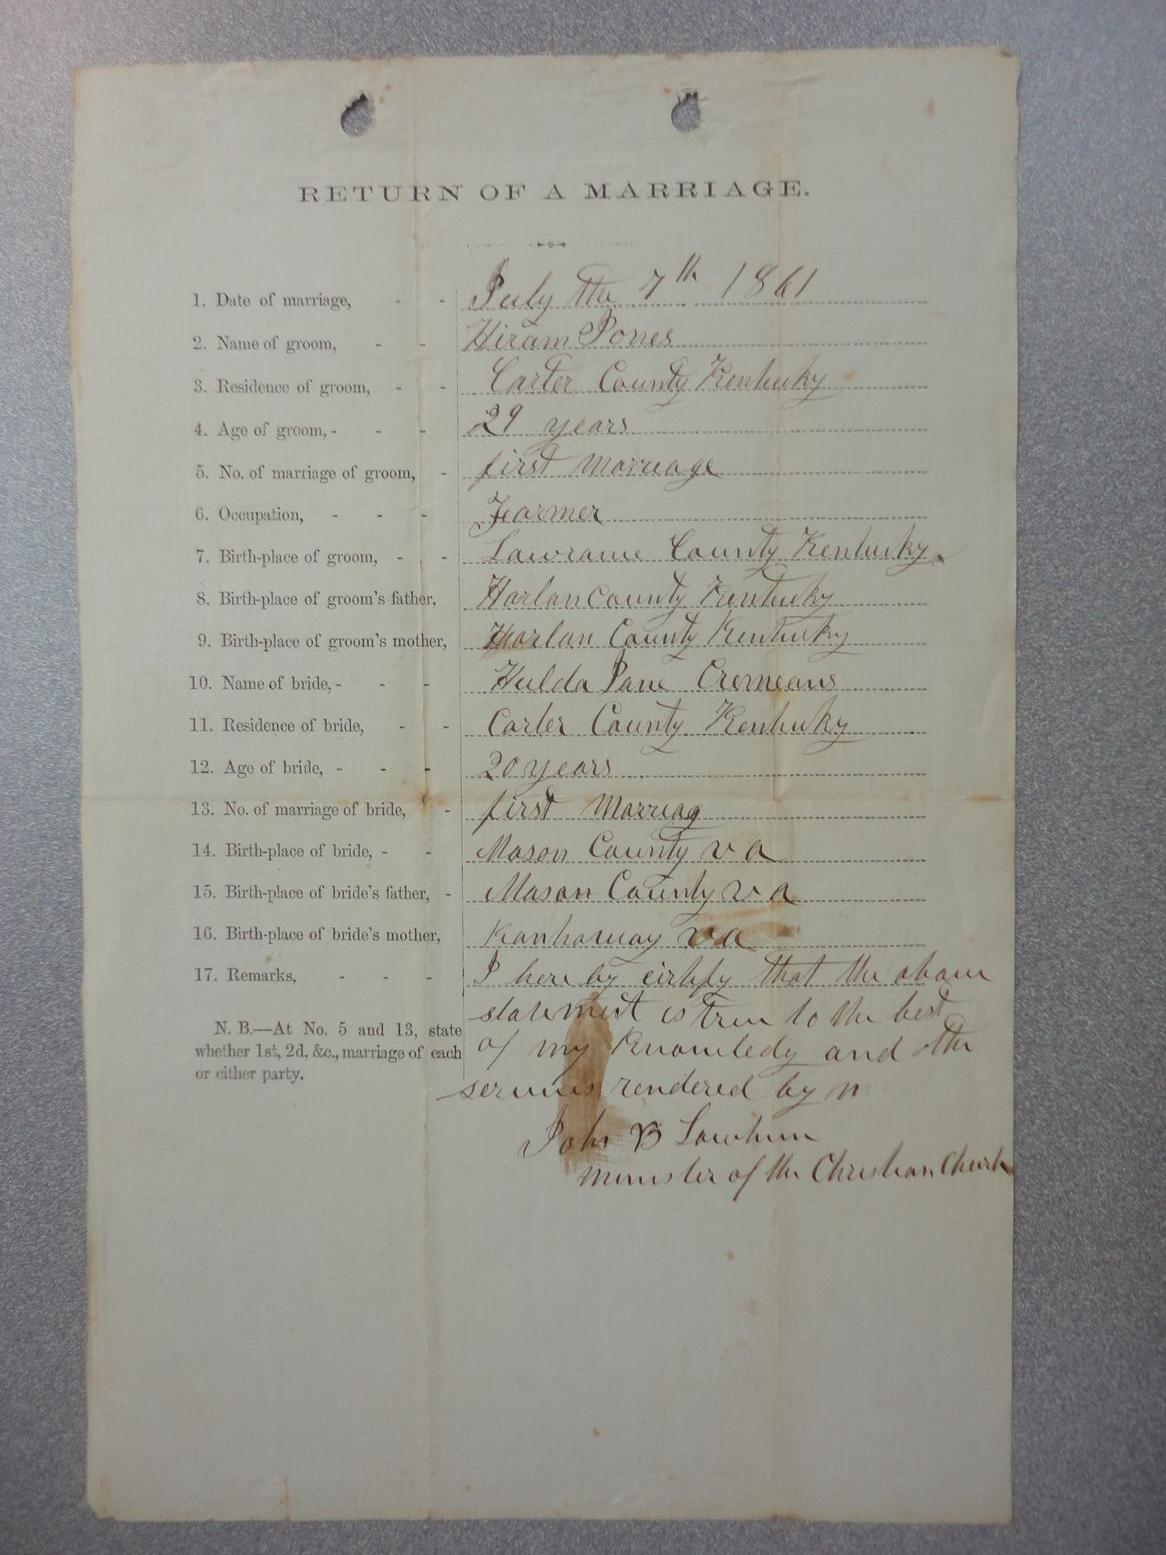 RETURN OF A MARRIAGE.
1. Date of marriage, - - July the 7th 1861
2. Name of groom, - - Hiram Jones
3. Residence of groom, - - Carter County Kentucky
4. Age of groom, - - - 29 years
5. No. of marriage of groom, - first Marreage
6. Occupation, - - - Farmer
7. Birth-place of groom, - - Lawrance County Kentucky
8. Birth-place of groom's father, Harlan County Kentucky
9. Birth-place of groom's mother, Harlan County Kentucky
10. Name of bride, - - - Hulda Jane Cremeans
11. Residence of bride, - - Carter County Kentucky
12. Age of bride, - - - 20 years
13. No. of marriage of bride, - first Marriag
14. Birth-place of bride, - - Mason County va
15. Birth-place of bride's father, - Mason County va
16. Birth-place of bride's mother, Kanhaway va
17. Remarks, - - - I here by cirtify that the above
statement is true to the best
N. B.—At No. 5 and 13, state
whether 1st, 2d, &c., marriage of each
or either party.
of my Knowledg and the
servises rendered by
John B
minister of the Christian Church